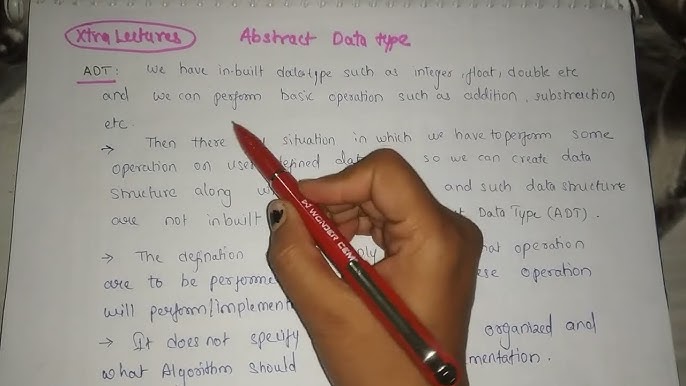 Xtra Lectures Abstract Data type
ADT: We have in-built datatype such as integer, float, double etc
and we can perform basic operation such as addition, substraction
etc.
→ Then there situation in which we have to perform some
operation on user defined dat so we can create data
structure along and such data structure
are not inbuilt Data Type (ADT).
→ The defination operation
are to be performe operation
will perform/implemen
→ It does not specify organized and
what Algorithm should mentation.
WONDER CEM